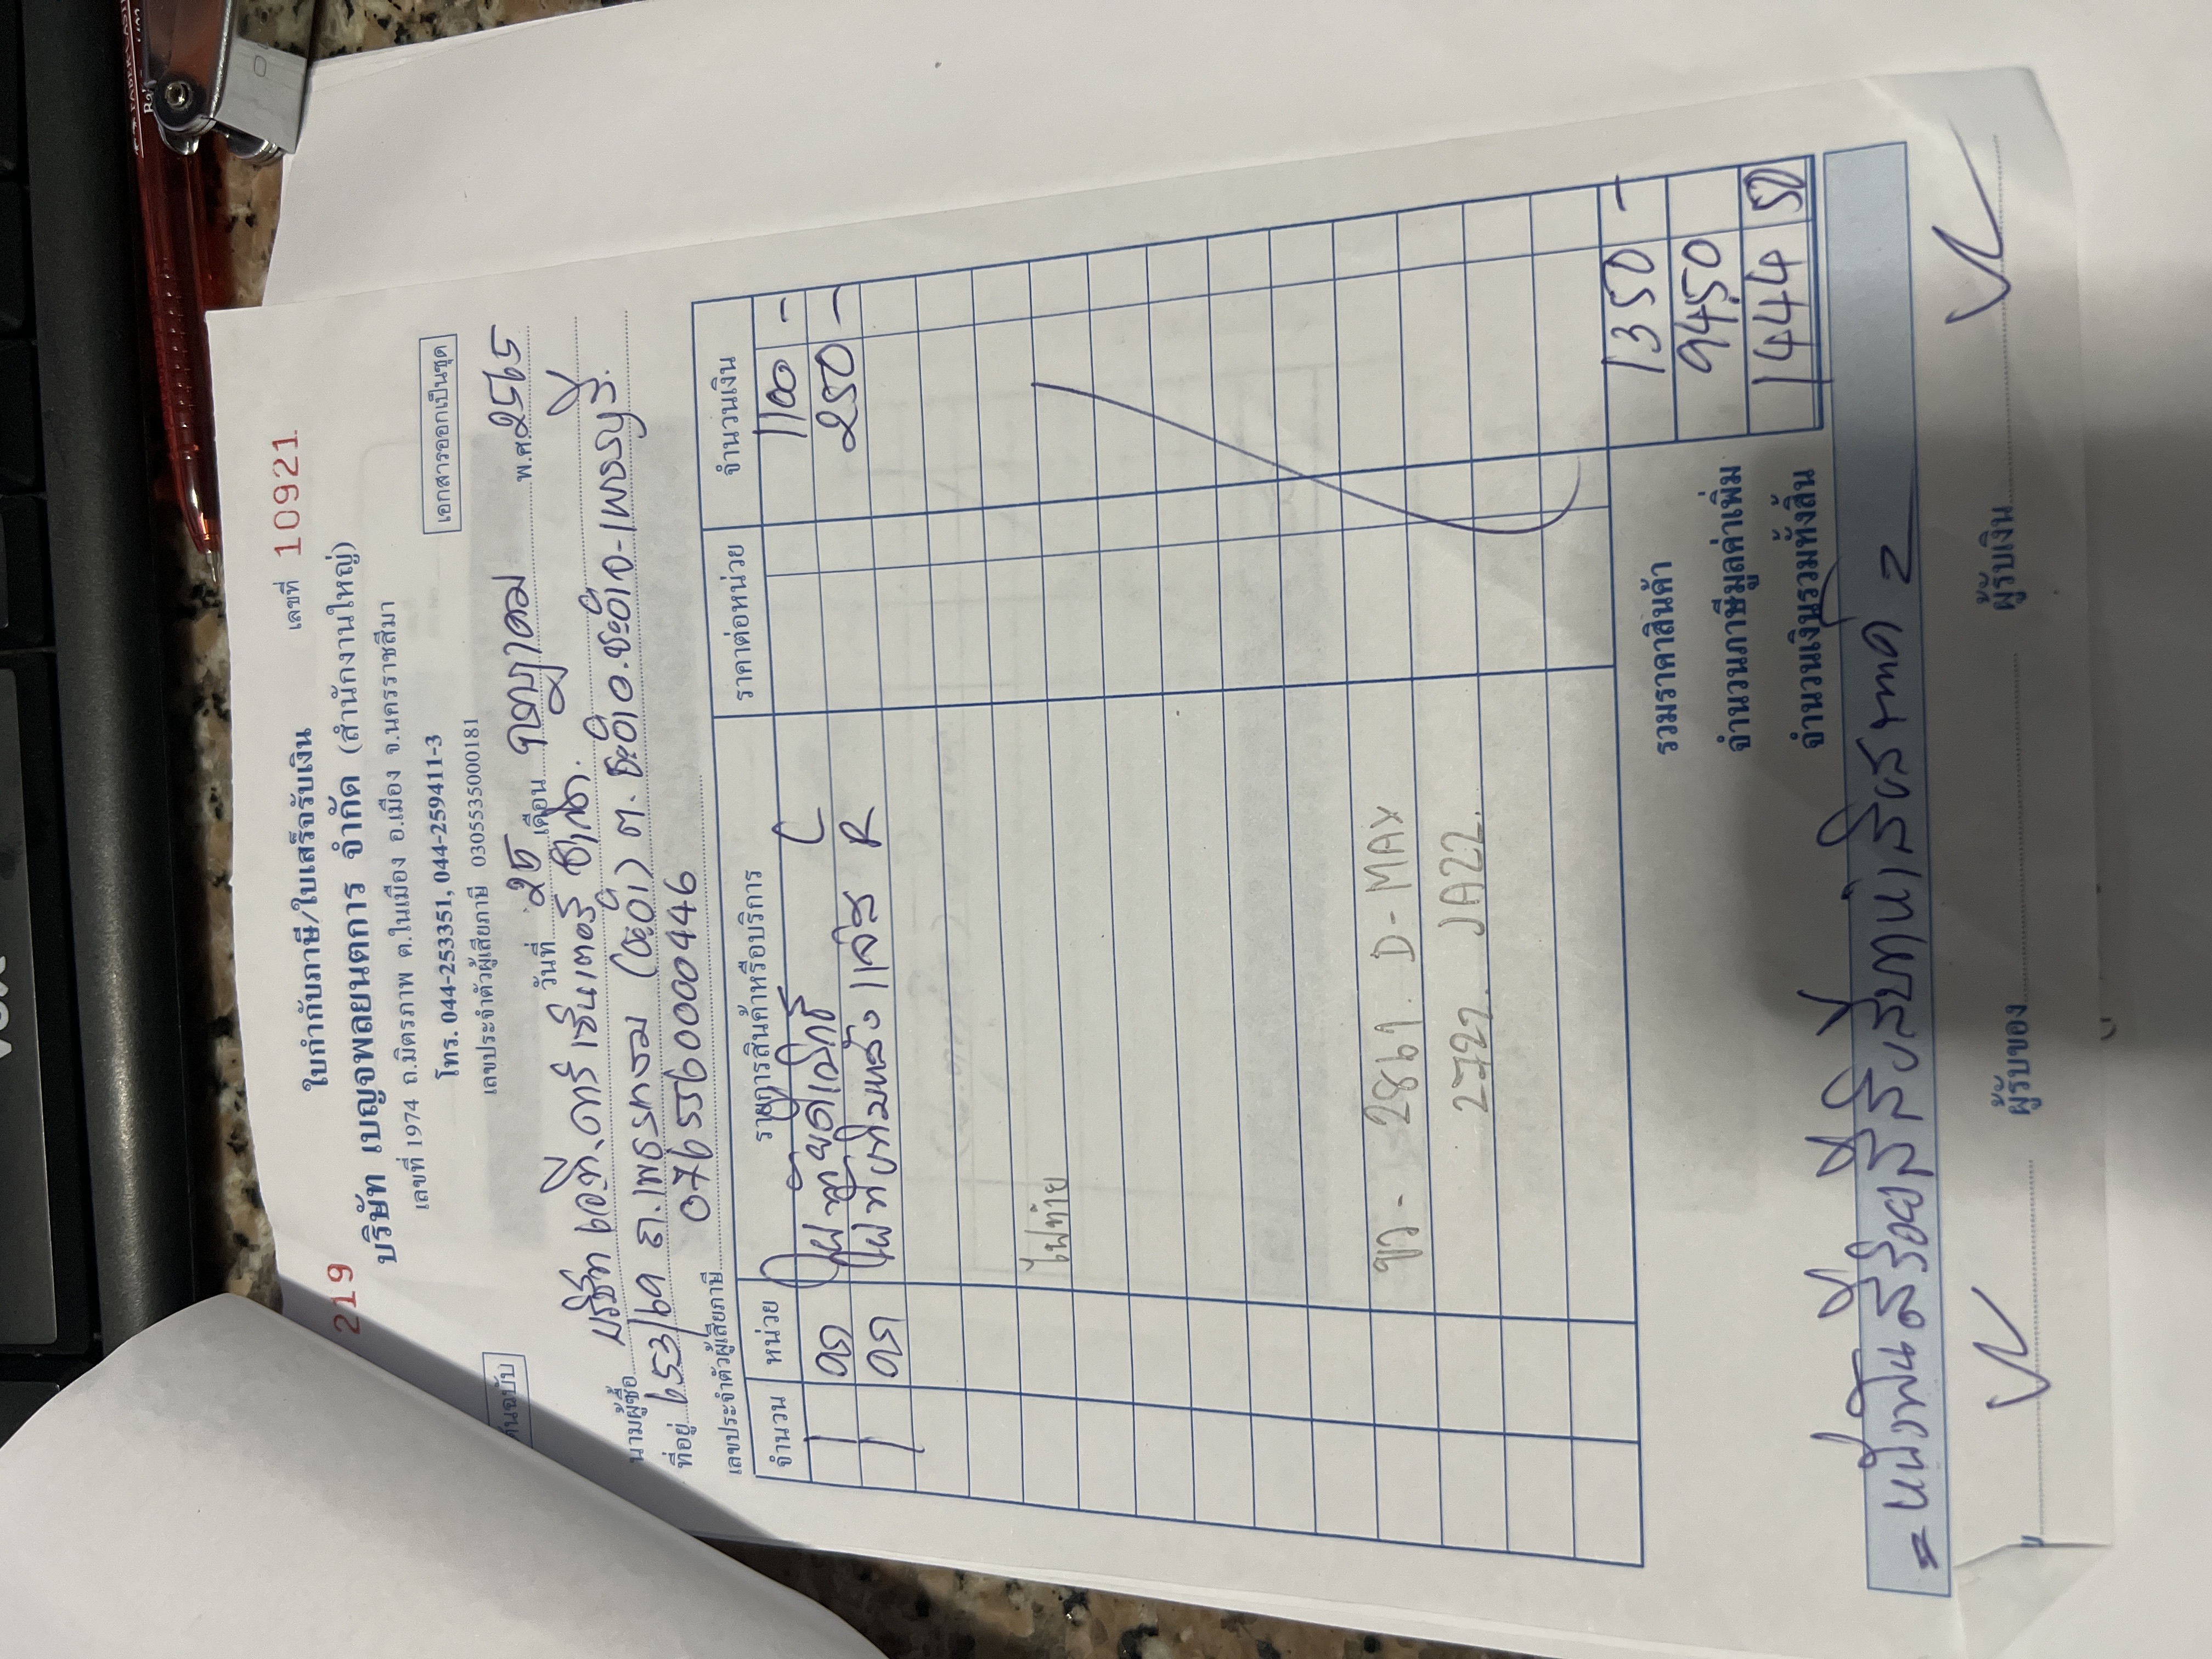 219
ใบกำกับภาษี/ใบเสร็จรับเงิน
เลขที่ 10921
บริษัท เบญจพลยนตการ จำกัด (สำนักงานใหญ่)
เลขที่ 1974 ถ.มิตรภาพ ต.ในเมือง อ.เมือง จ.นครราชสีมา
โทร. 044-253351, 044-259411-3
เลขประจำตัวผู้เสียภาษี 0305535000181
เอกสารออกเป็นชุด
ต้นฉบับ
วันที่ 25 เดือน พ.ศ. 2565
นามผู้ซื้อ บริษัท เอ.ที.คาร์ เซ็นเตอร์
ที่อยู่ 653/69 ถ.เพชรเกษม (ชะอำ) ต.ชะอำ อ.ชะอำ จ.เพชรบุรี.
เลขประจำตัวผู้เสียภาษี 0765560000446
จำนวน หน่วย รายการสินค้าหรือบริการ ราคาต่อหน่วย จำนวนเงิน
1 ดว L 1100 -
1 ดว R 250 -
ไฟท้าย
ขว - 2869. D-MAX
2722. JAZZ.
รวมราคาสินค้า 1350 -
จำนวนภาษีมูลค่าเพิ่ม 94.50
จำนวนเงินรวมทั้งสิ้น 1444 50
= หนึ่งพันสี่ร้อยสี่สิบสี่บาทห้าสิบสตางค์ =
ผู้รับของ
ผู้รับเงิน